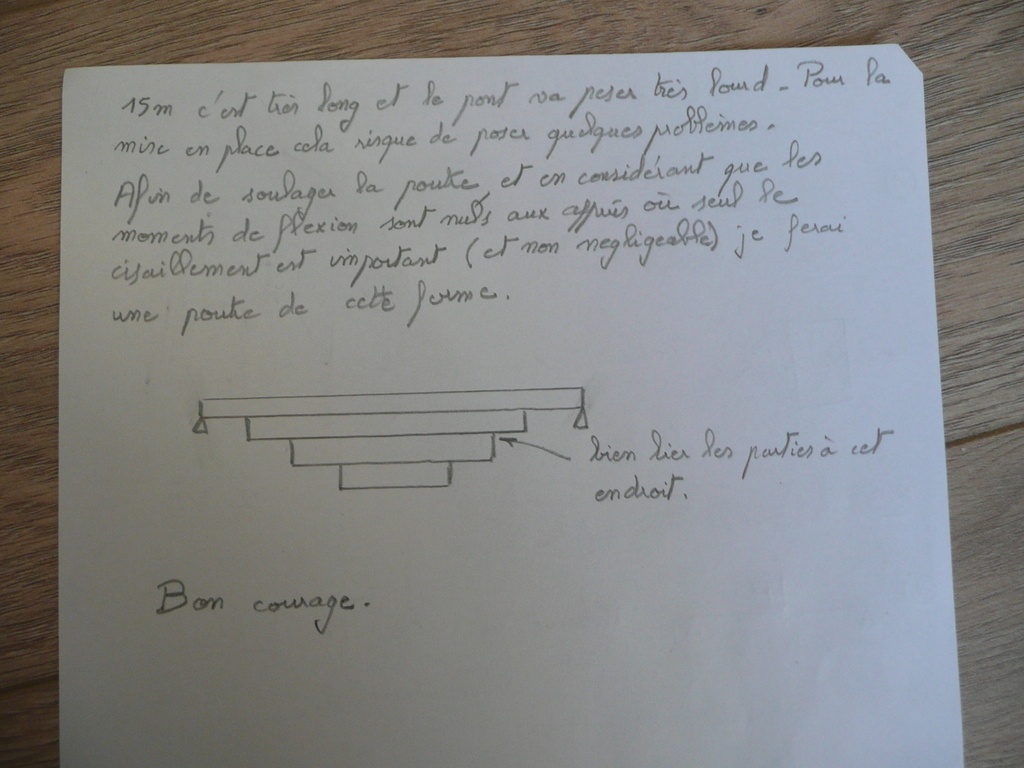 15m c'est très long et le pont va peser très lourd - Pour la
mise en place cela risque de poser quelques problèmes.
Afin de soulager la poutre, et en considérant que les
moments de flexion sont nuls aux appuis où seul le
cisaillement est important (et non negligeable) je ferai
une poutre de cette forme.
bien lier les parties à cet
endroit.
Bon courage.